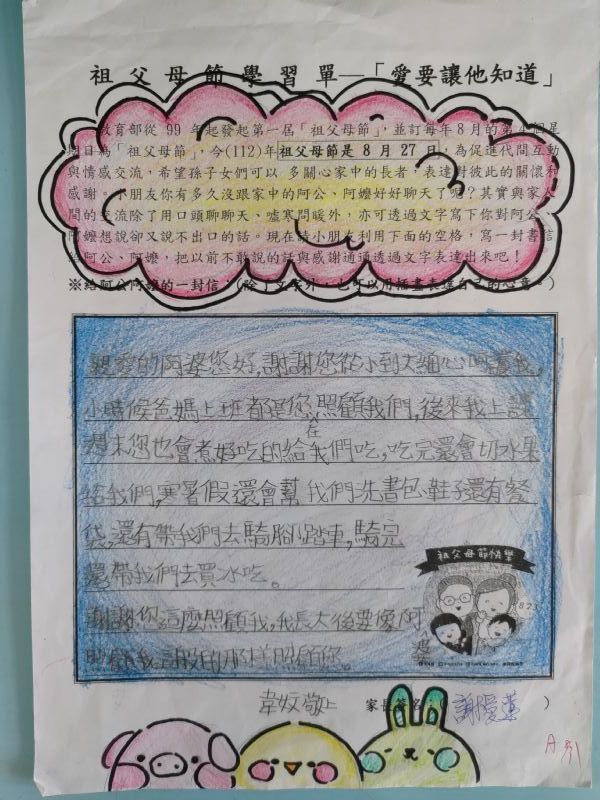 祖父母節學習單—「愛要讓他知道」
教育部從 99 年起發起第一屆「祖父母節」,並訂每年 8 月的第 4 個星
期日為「祖父母節」,今(112)年祖父母節是 8 月 27 日,為促進代間互動
與情感交流,希望孫子女們可以多關心家中的長者,表達對彼此的關懷和
感謝。小朋友你有多久沒跟家中的阿公、阿嬤好好聊天了呢?其實與家人
間的交流除了用口頭聊聊天、噓寒問暖外,亦可透過文字寫下你對阿公、
阿嬤想說卻又說不出口的話。現在請小朋友利用下面的空格,寫一封書信
給阿公、阿嬤,把以前不敢說的話與感謝通通透過文字表達出來吧!
※給阿公阿嬤的一封信:(除了文字外,也可以用插畫表達自己的心意。)
親愛的阿婆您好,謝謝您從小到大細心呵護我,
小時候爸媽上班都是您照顧我們,後來我上課
週末您也會煮好吃的給在我們吃,吃完還會切水果
給我們,寒暑假還會幫我們洗書包鞋子還有餐
袋,還有帶我們去騎腳踏車,騎完
還帶我們去買冰吃。
謝謝你這麼照顧我,我長大後要像阿婆
照顧我這般的那樣照顧您。
祖父母節快樂
823
敬上
家長簽名:( )
A